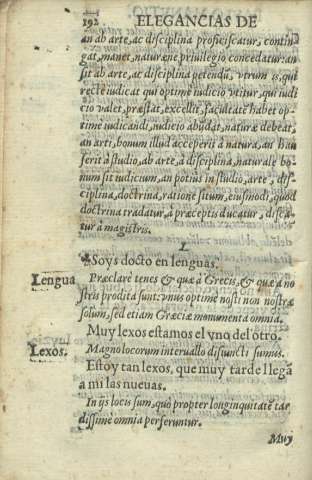 192 ELEGANCIAS DE
an ab arte, ac disciplina proficiscatur, contin
gat, manet, naturæne priuilegio concedatur: an
sit ab arte, ac disciplina petendū, vtrum is, qui
recte iudicat qui optime iudicio vtitur, qui iudi
cio valet, præstat, excellit, facultatē habet op-
time iudicandi, iudicio abūdat, naturæ debeat,
an arti, bonum illud acceperit à natura, an hau
serit à studio, ab arte, à disciplina, naturale bo-
num sit iudicium, an potius in studio, arte, dis-
ciplina, doctrina, ratione situm, eiusmodi, quod
doctrina tradatur, à præceptis ducatur, disca-
tur à magistris.
Soys docto en lenguas.
Lengua Præclarè tenes & quæ à Grecis, & quæ à no
stris prodita sunt: vnus optimè nosti non nostræ
solum, sed etiam Græciæ monumenta omnia.
Muy lexos estamos el vno del otro.
Lexos. Magno locorum interuallo disiuncti sumus.
Estoy tan lexos, que muy tarde llegā
a mi las nueuas.
In ijs locis sum, quò propter longinquitatē tar
dissimè omnia perferuntur.
Muy